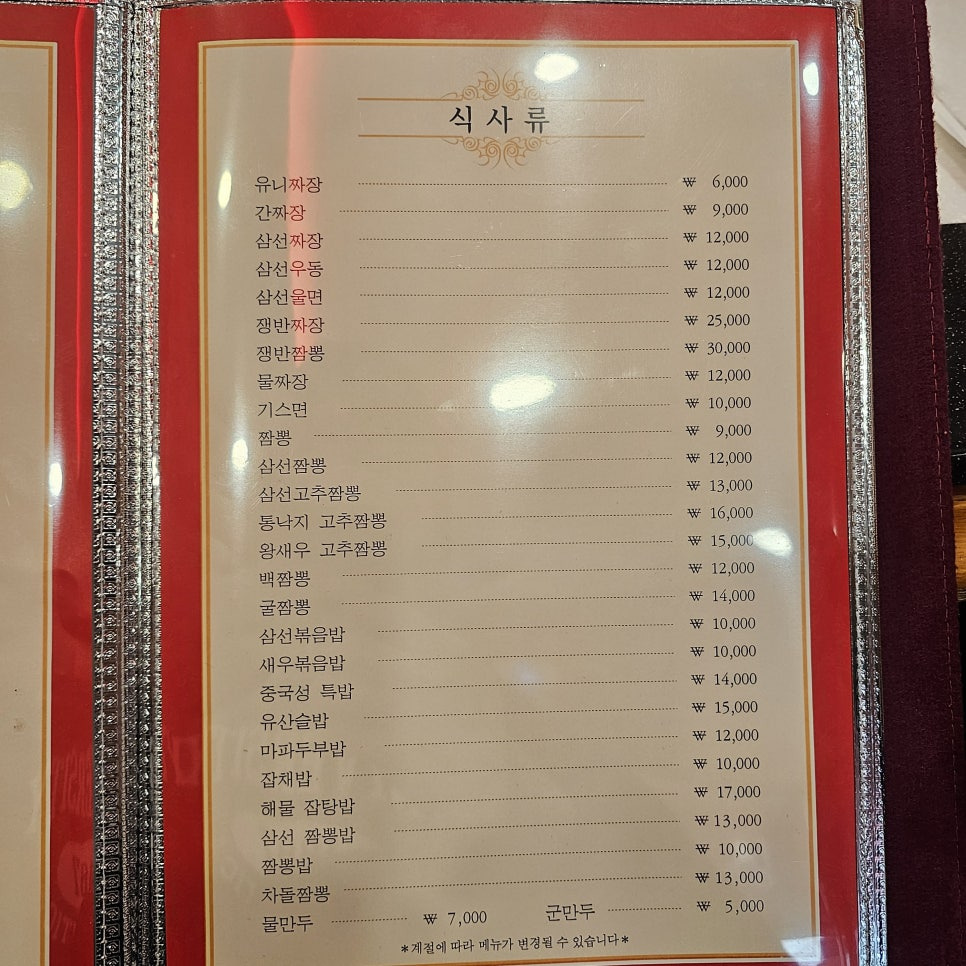 식사류
유니짜장 ₩ 6,000
간짜장 ₩ 9,000
삼선짜장 ₩ 12,000
삼선우동 ₩ 12,000
삼선울면 ₩ 12,000
쟁반짜장 ₩ 25,000
쟁반짬뽕 ₩ 30,000
물짜장 ₩ 12,000
기스면 ₩ 10,000
짬뽕 ₩ 9,000
삼선짬뽕 ₩ 12,000
삼선고추짬뽕 ₩ 13,000
통낙지 고추짬뽕 ₩ 16,000
왕새우 고추짬뽕 ₩ 15,000
백짬뽕 ₩ 12,000
굴짬뽕 ₩ 14,000
삼선볶음밥 ₩ 10,000
새우볶음밥 ₩ 10,000
중국성 특밥 ₩ 14,000
유산슬밥 ₩ 15,000
마파두부밥 ₩ 12,000
잡채밥 ₩ 10,000
해물 잡탕밥 ₩ 17,000
삼선 짬뽕밥 ₩ 13,000
짬뽕밥 ₩ 10,000
차돌짬뽕 ₩ 13,000
물만두 ₩ 7,000 군만두 ₩ 5,000
*계절에 따라 메뉴가 변경될 수 있습니다*